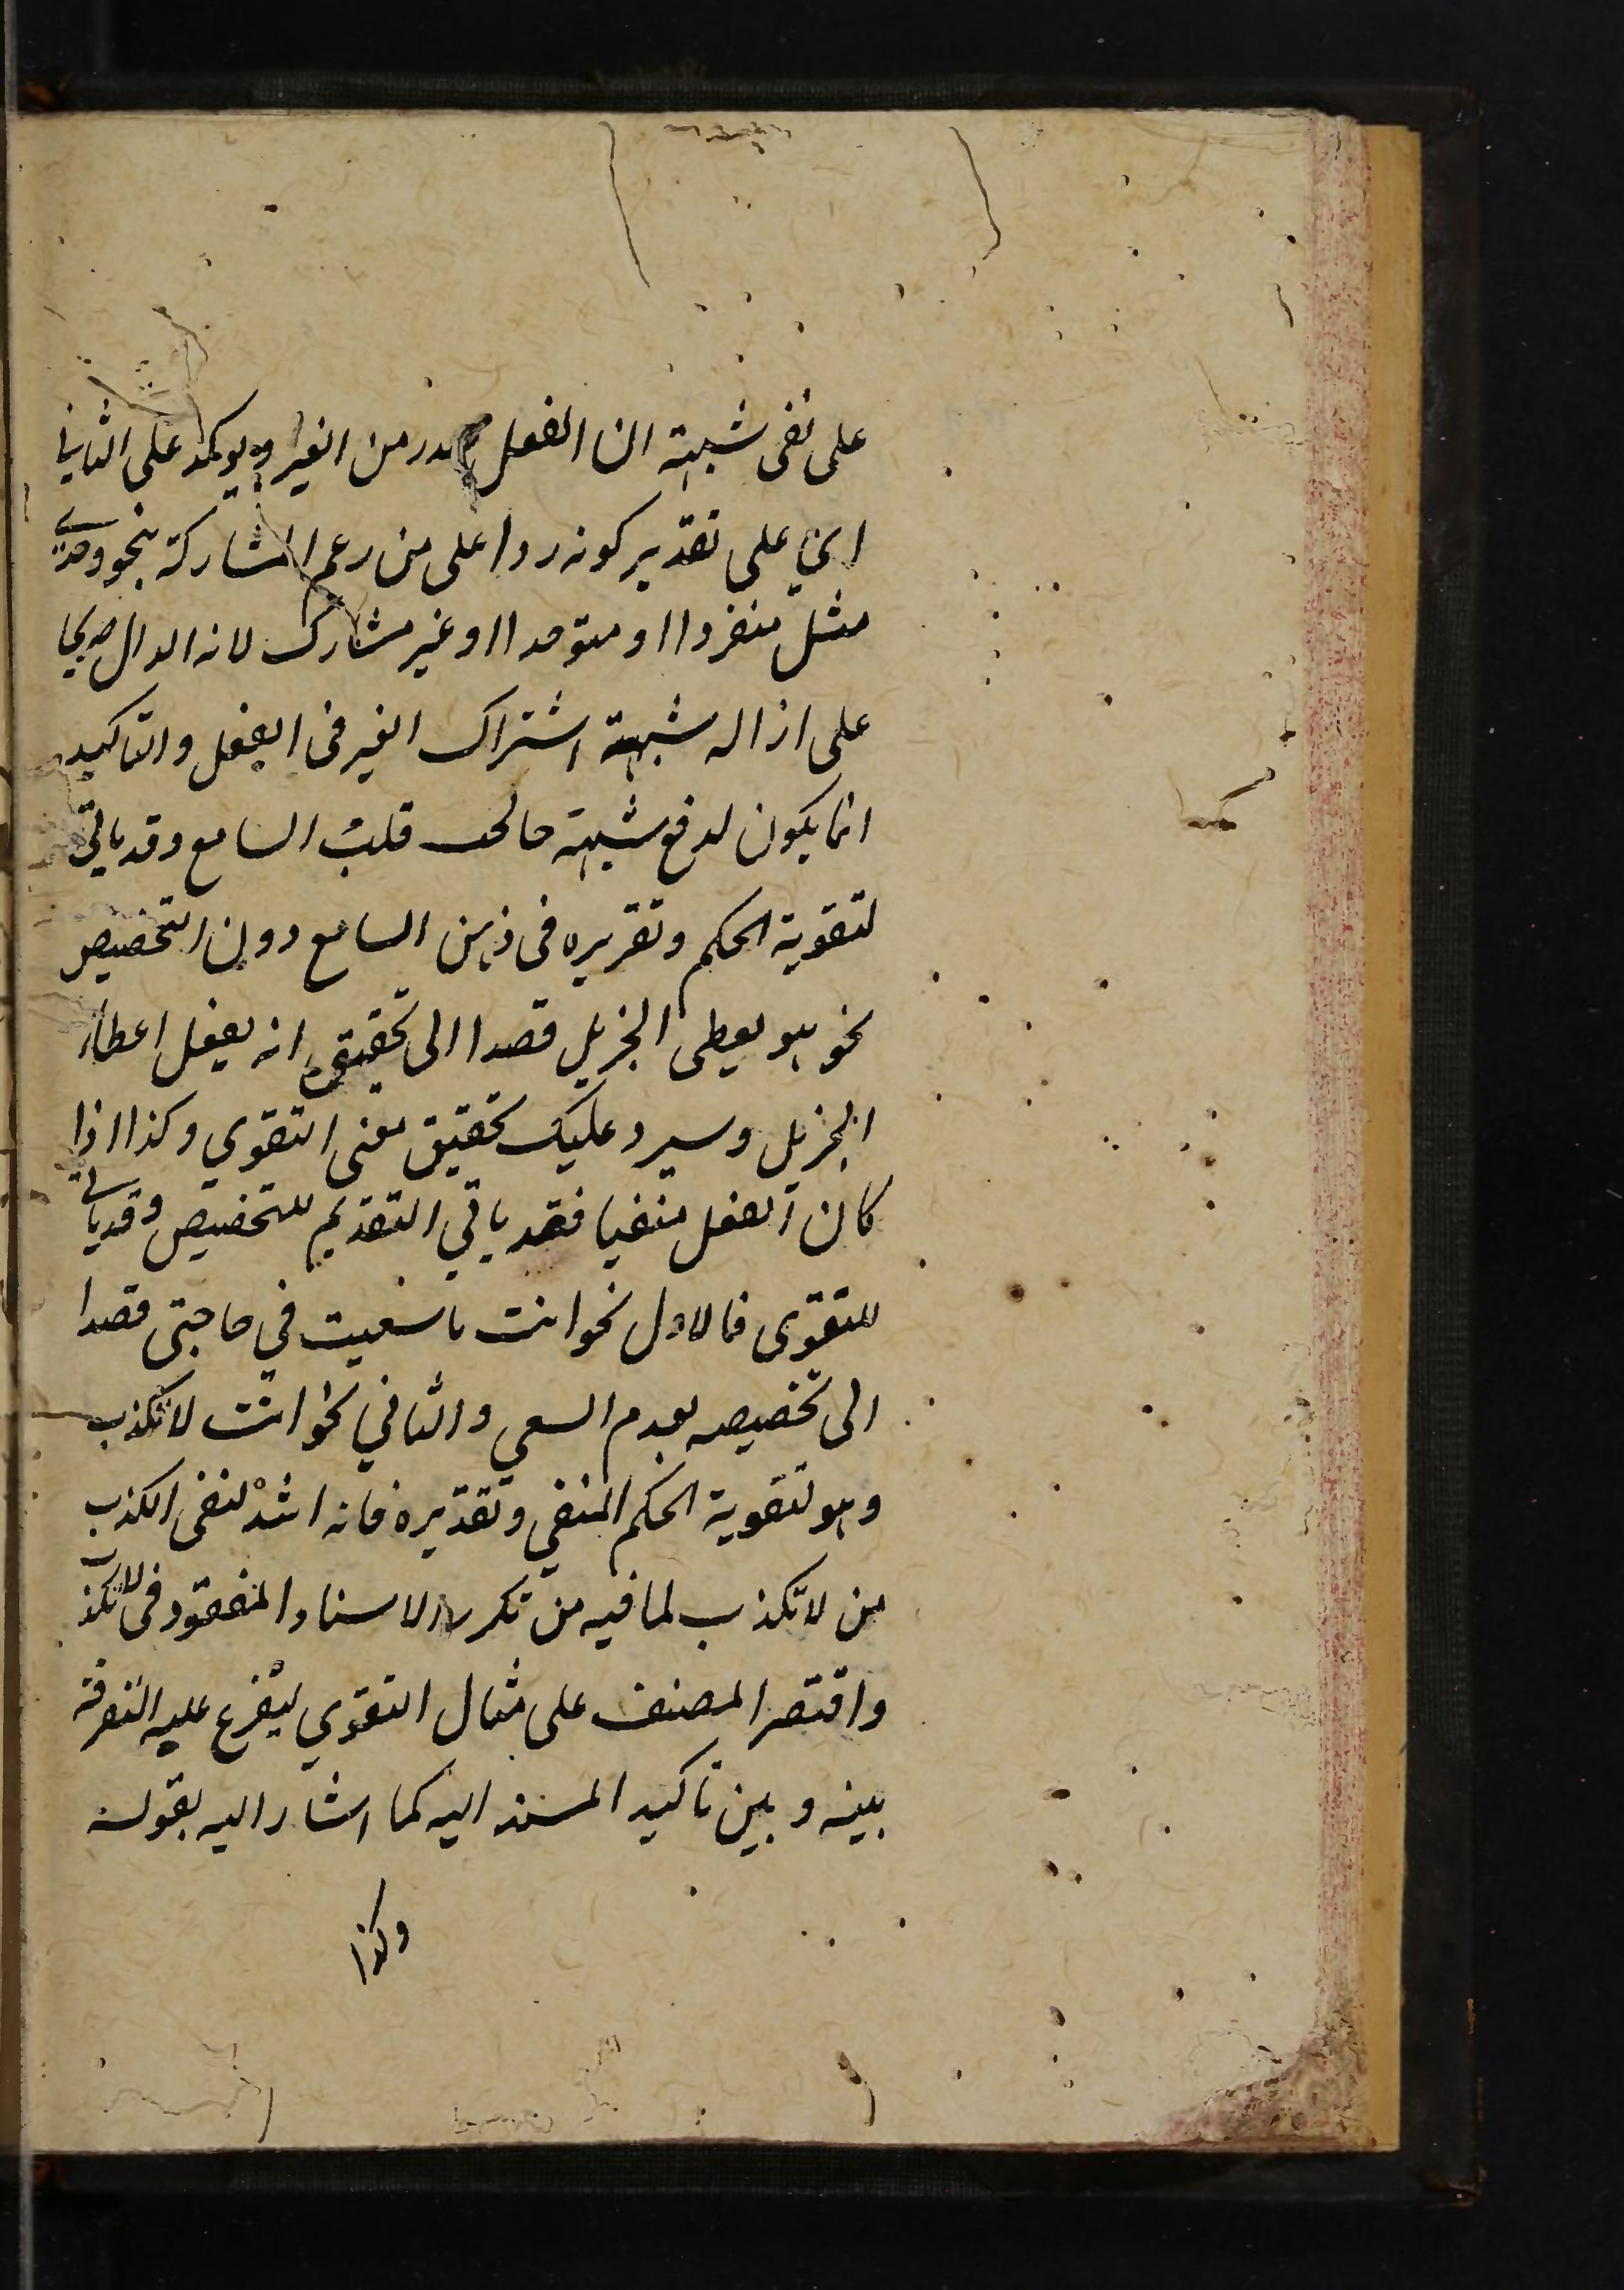 على نفى شبهة ان الفعل صدر من الغير ويوكد على الثانى
اي على تقدير كونه ردا على من زعم المشاركة بنحو وحدي
مثل منفردا او متوحدا او غير مشارك لانه الدال صريحا
على ازالة شبهة اشتراك الغير فى الفعل والتاكيد
انما يكون لدفع شبهة خالجت قلب السامع وقد ياتي
لتقوية الحكم وتقريره فى ذهن السامع دون التخصيص
نحو هو يعطى الجزيل قصدا الى تحقيق انه يفعل اعطاء
الجزيل وسيرد عليك تحقيق معنى التقوي وكذا اذا
كان الفعل منفيا فقد ياتي التقديم للتخصيص وقد ياتي
للتقوى فالاول نحو انت ما سعيت في حاجتى قصدا
الى تخصيصه بعدم السعي والثاني نحو انت لا تكذب
وهو لتقوية الحكم المنفي وتقديره فانه اشد لنفى الكذب
من لا تكذب لما فيه من تكرر الاسناد المفقود فى لا تكذب
واقتصر المصنف على مثال التقوي ليفرع عليه التفرقة
بينه وبين تاكيد المسند اليه كما اشار اليه بقوله
وكذا